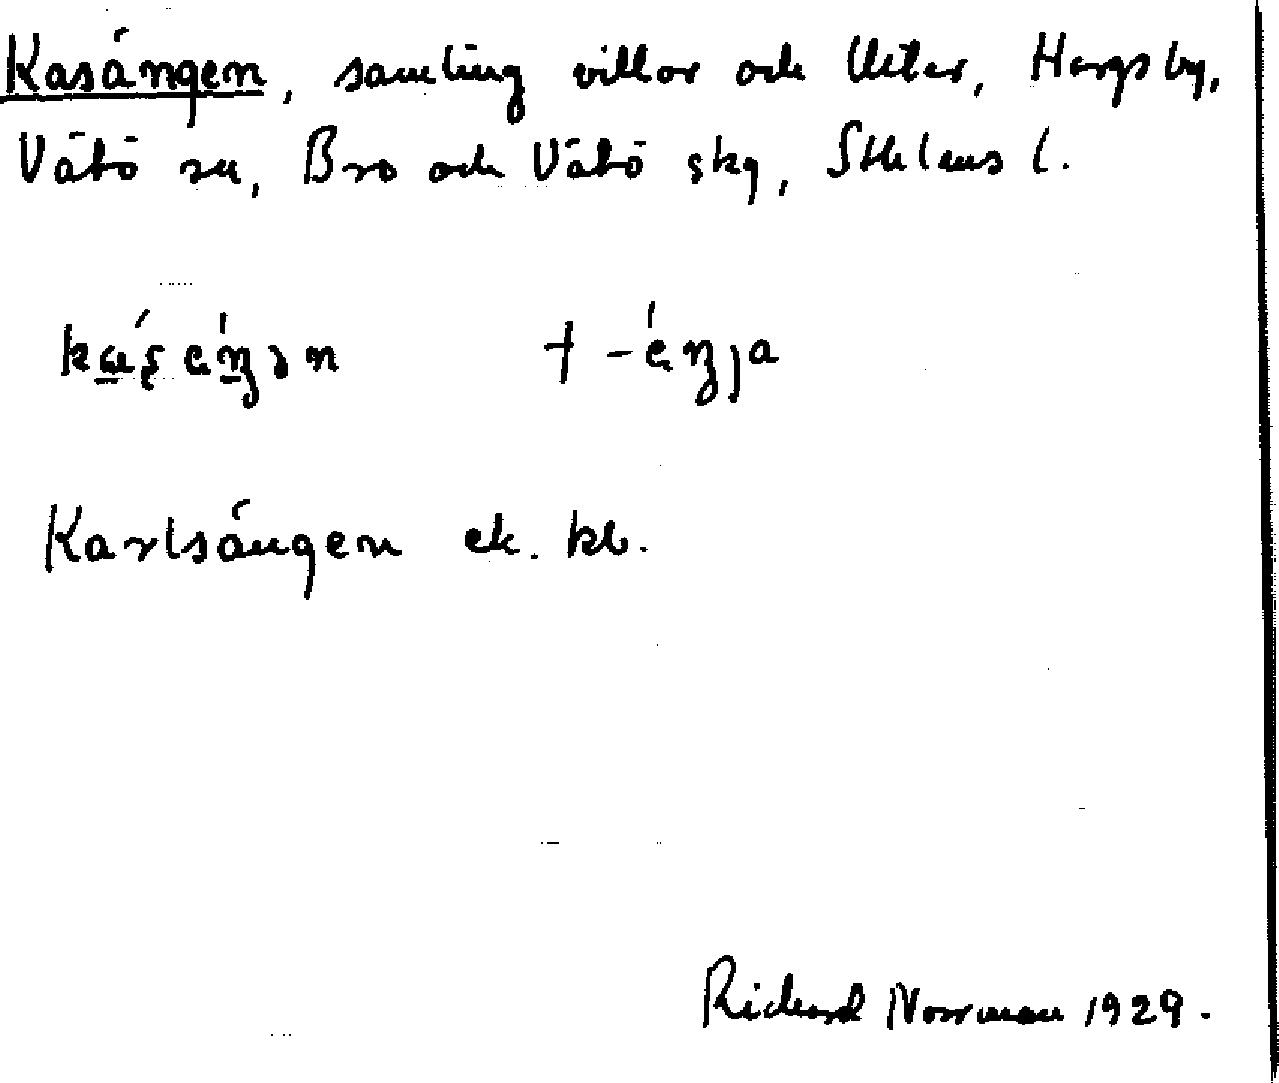 Kasängen, samling villor och Uthus, Hargsby,
Vätö sn, Bro och Vätö skg, Sthlms l.
Karlsängen ek. kb.
Richard Norrman 1929.